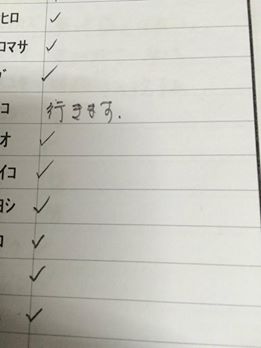 ヒロ ✓
ロマサ ✓
ダ ✓
コ 行きます.
オ ✓
イコ ✓
ヨシ ✓
ロ ✓
✓
✓